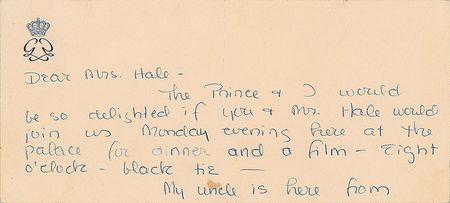 Dear Mrs. Hale -
The Prince & I would
be so delighted if you & Mr. Hale would
join us Monday evening here at the
palace for dinner and a film - Eight
o'clock - black tie —
My uncle is here from